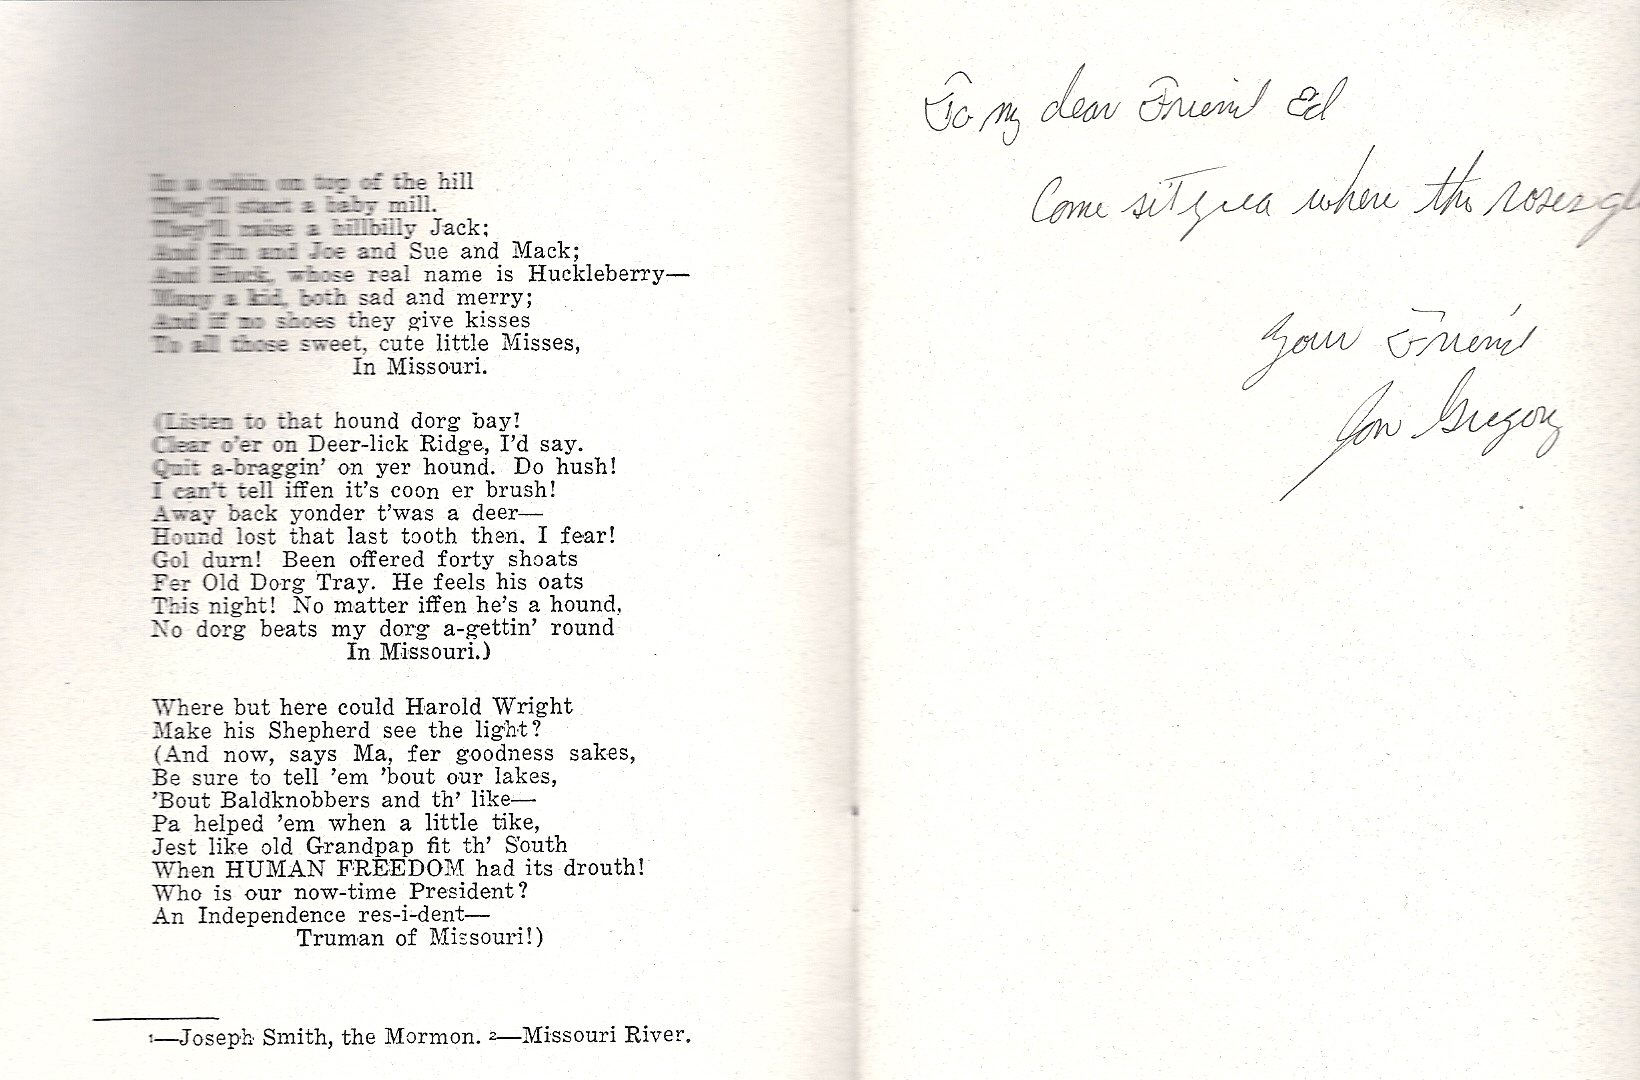 In a cabin on top of the hill
They'll start a baby mill.
They'll raise a hillbilly Jack;
And Fin and Joe and Sue and Mack;
And Huck, whose real name is Huckleberry—
Many a kid, both sad and merry;
And if no shoes they give kisses
To all those sweet, cute little Misses,
In Missouri.
(Listen to that hound dorg bay!
Clear o'er on Deer-lick Ridge, I'd say.
Quit a-braggin' on yer hound. Do hush!
I can't tell iffen it's coon er brush!
Away back yonder t'was a deer—
Hound lost that last tooth then, I fear!
Gol durn! Been offered forty shoats
Fer Old Dorg Tray. He feels his oats
This night! No matter iffen he's a hound,
No dorg beats my dorg a-gettin' round
In Missouri.)
Where but here could Harold Wright
Make his Shepherd see the light?
(And now, says Ma, fer goodness sakes,
Be sure to tell 'em 'bout our lakes,
'Bout Baldknobbers and th' like—
Pa helped 'em when a little tike,
Jest like old Grandpap fit th' South
When HUMAN FREEDOM had its drouth!
Who is our now-time President?
An Independence res-i-dent—
Truman of Missouri!)
1—Joseph Smith, the Mormon. 2—Missouri River.
To my dear Friend Ed
Come sit where the roses
Your Friend
Jon Gregory